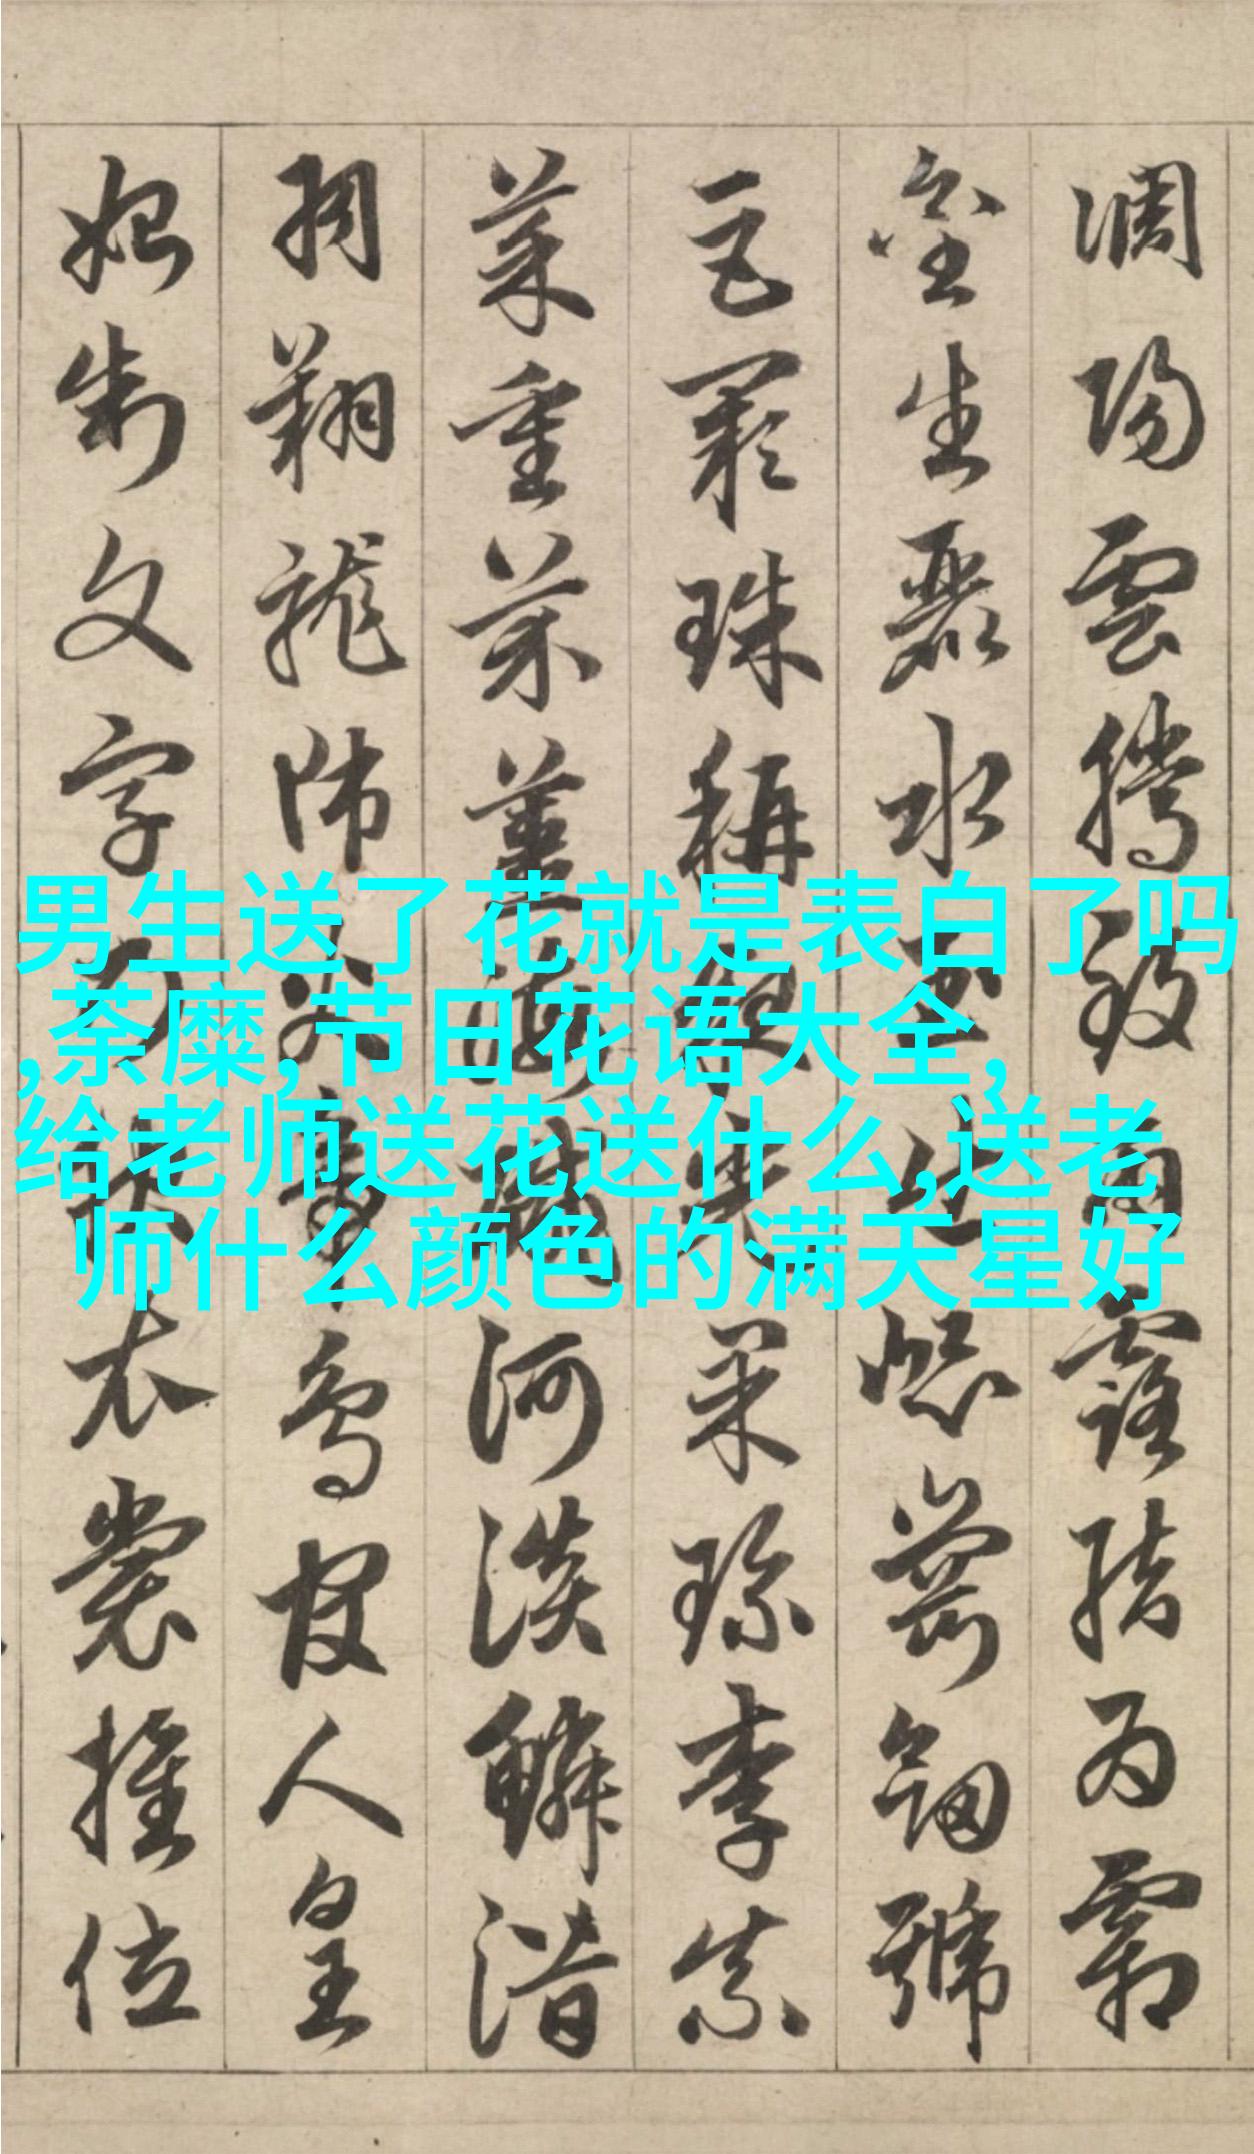 男生送了花就是表白了吗
,荼糜,节日花语大全,
给老师送花送什么,送老
师什么颜色的满天星好
調陽雲騰致雨露結為霜
金生麗水玉出崑崗劍號
巨闕珠稱夜光果珍李柰
菜重芥薑海鹹河淡鱗潛
羽翔龍師火帝鳥官人皇
始制文字乃服衣裳推位